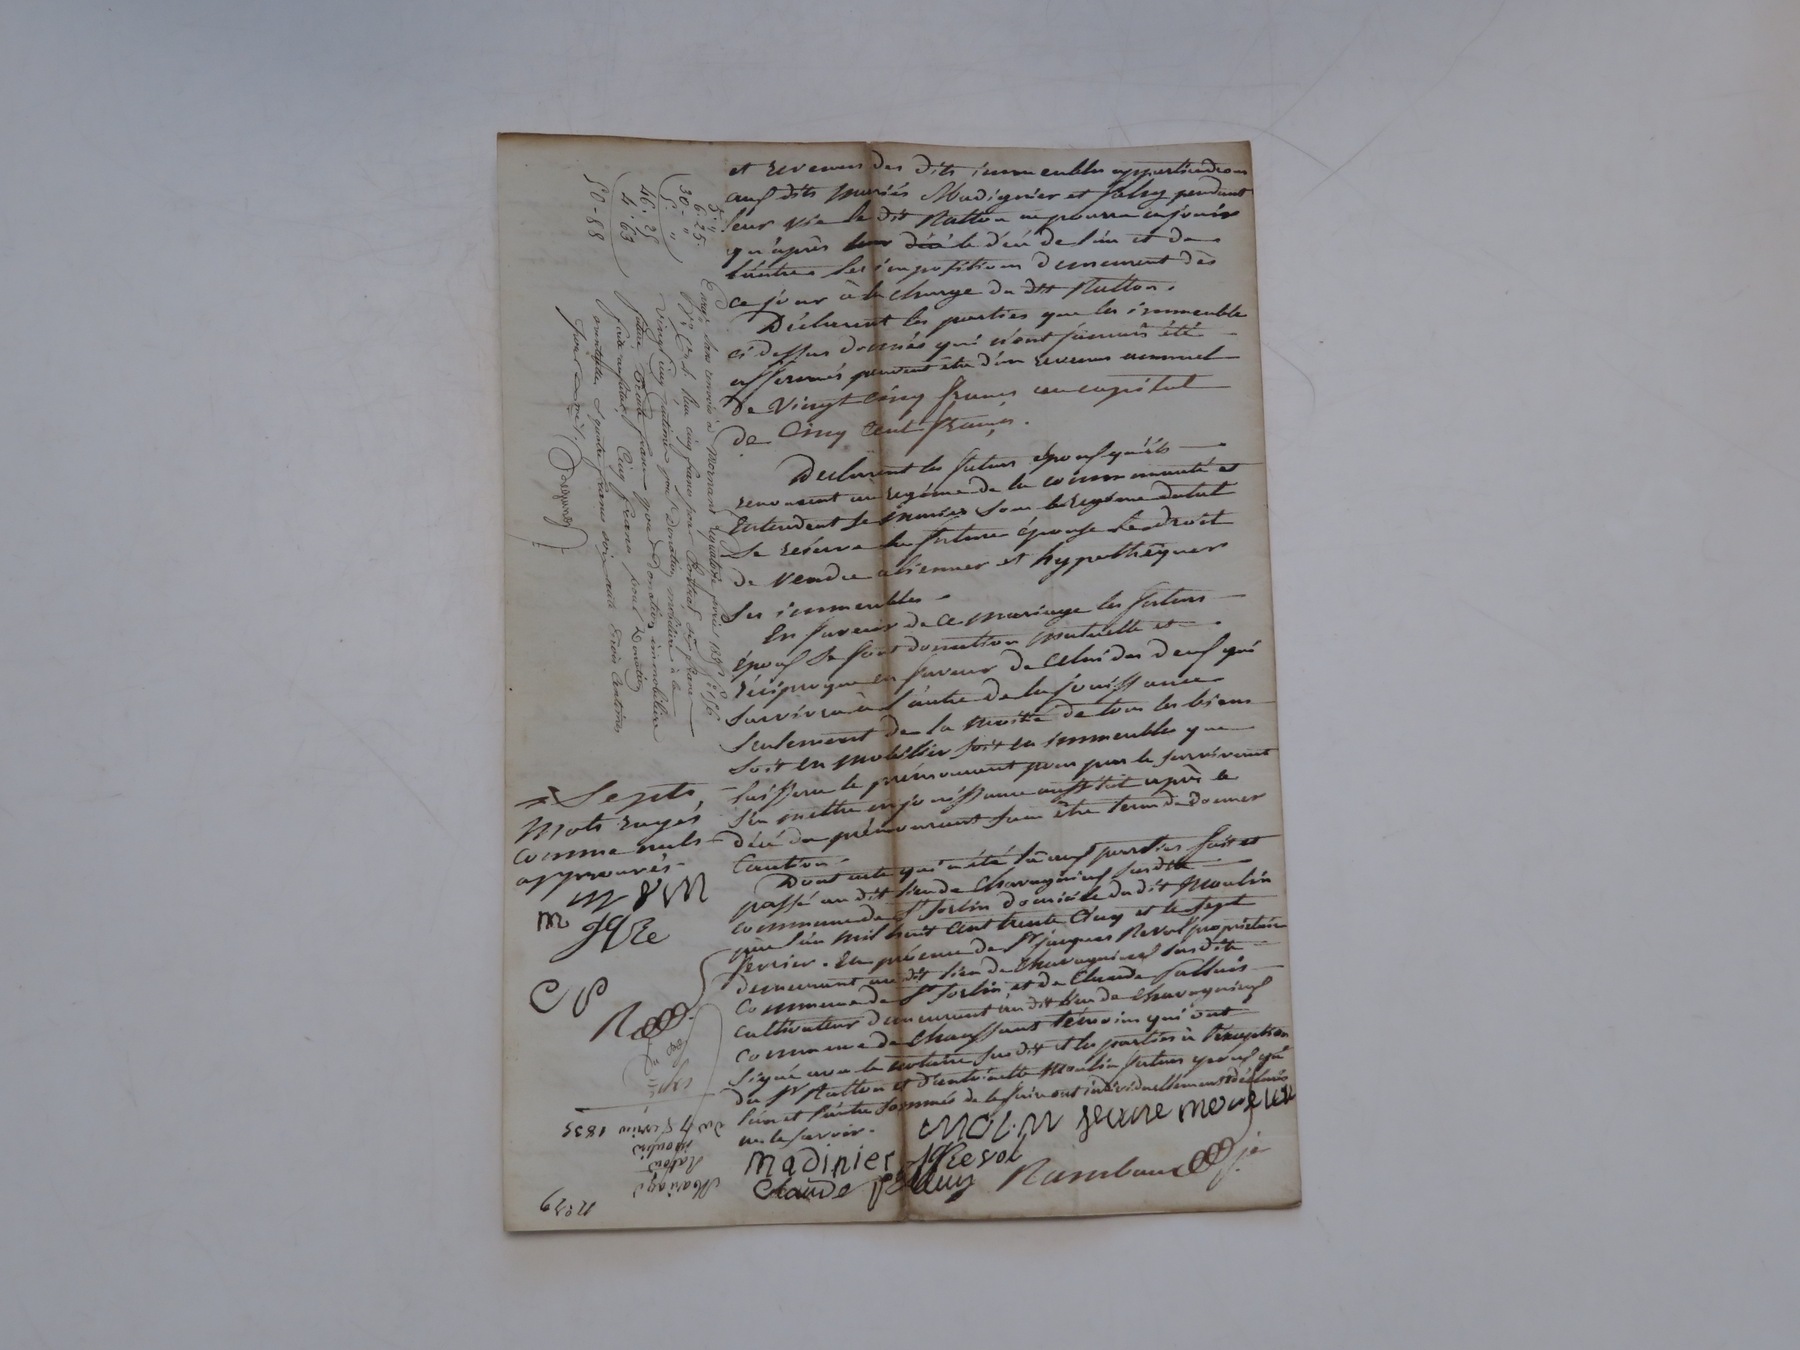 et revenus des dits immeubles appartiendrons
aux dits mariés Madignier et pendant
leur vie le dit Ratton ne pourra en jouir
qu'après leur décè le décé de l'un et de
l'autre les impositions demeurent dès
ce jour à la charge du dit Ratton.
Déclarent les parties que les immeubles
ci dessus donnés qui n'ont jamais été
affermés peuvent être d'un revenu annuel
de Vingt Cinq francs au capital
de Cinq Cent francs.
Déclarent les futurs époux qu'ils
renoncent au régime de la communauté et
entendent se marier sous le régime dotal
se réserve la future épouse le droit
de vendre alienner et hypothéquer
ses immeubles.
En faveur de ce mariage les futurs
époux se font donation mutuelle et
réciproque en faveur de celui des deux qui
survivra à l'autre de la jouissance
seulement de la moitié de tous les biens
soit en mobilier soit en immeubles que
laissera le prémourant pour par le survivant
s'en mettre en jouissance aussitôt après le
décé du prémourant sans être tenu de donner
Caution.
Dont acte qui a été lu aux parties fait et
passé au dit lieu de Chavagnieux susdite
commune de St Sorlin domicile du dit Moulin
père l'an mil huit cent trente Cinq et le sept
fevrier. En présence de Sr jacques Revol propriétaire
demeurant au dit lieu de Chavagnieux susdite
Commune de St Sorlin et de Claude
cultivateur demeurant au dit lieu de Chavagnieux
commune de Chaussant témoins qui ont
signé avec le notaire susdit et les parties à l'exception
du Sr Ratton et d'antoinette Moulin futurs époux qui
l'un et l'autre sommés de le faire ont individuellement déclarés
ne le savoir.
Madinier
jqRevol
Claude
Rambaud je
Septs
Mots rayés
comme nuls
approuvés
m
jqRe
5 "
6 · 25
30 - "
5 "
46 · 25
4 · 63
50 - 88
Enreg. sans renvoi à Mornant le quatorze 1835
Reçu cinq francs pour Contrat,
Vingt cinq centimes pour Donation mobilière à la
future, Trente francs pour Donation immobilière
Cinq francs pour Donation
éventuelle, & quatre francs soixante trois Centimes
pour
N° 39
Mariage
Raton
Moulin
du 7 fevrier 1835